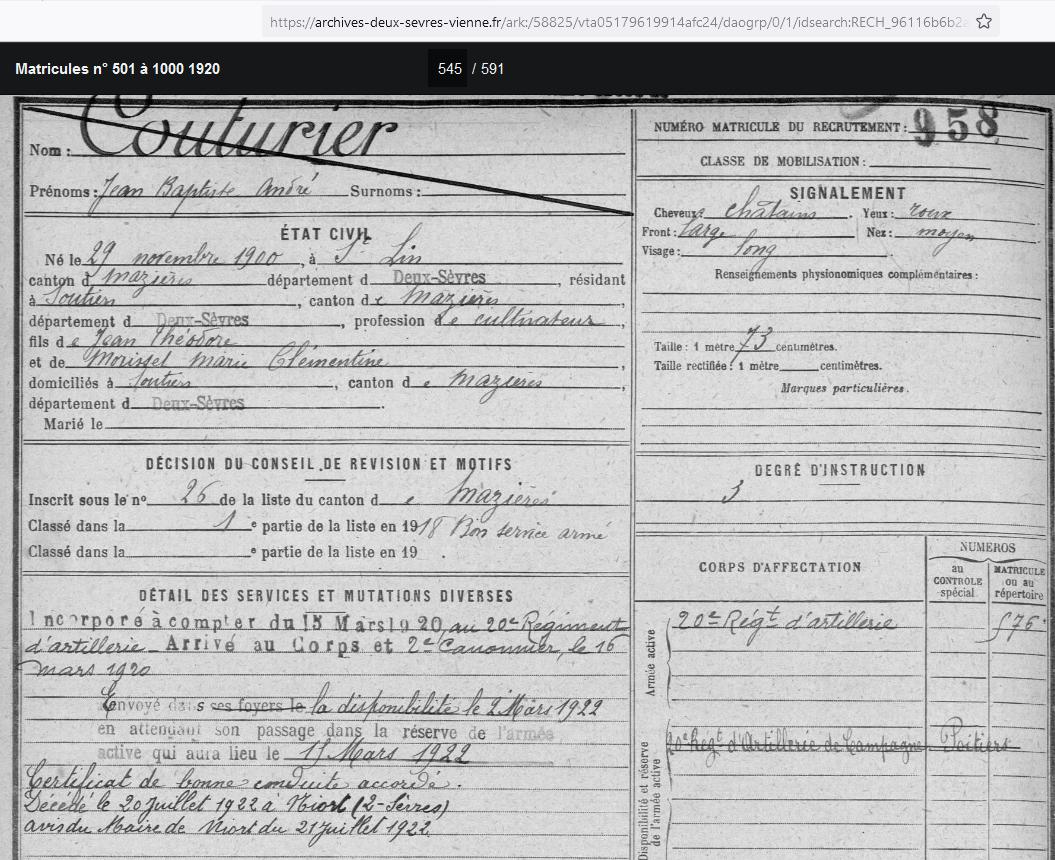 https://archives-deux-sevres-vienne.fr/ark:/58825/vta05179619914afc24/daogrp/0/1/idsearch:RECH_96116b6b2
Matricules n° 501 à 1000 1920
545 / 591
Couturier
Nom :
Prénoms : Jean Baptiste André Surnoms :
ÉTAT CIVIL
Né le 29 novembre 1900, à St Lin
canton d mazières département d Deux-Sèvres, résidant
à Soutiers, canton de Mazières,
département d Deux-Sèvres, profession de cultivateur,
fils de Jean Théodore
et de Morisset Marie Clémentine,
domiciliés à Soutiers, canton de Mazières,
département d Deux-Sèvres.
Marié le
DÉCISION DU CONSEIL DE REVISION ET MOTIFS
Inscrit sous le no 26 de la liste du canton de Mazières
Classé dans la 1e partie de la liste en 1918 Bon service armé
Classé dans la e partie de la liste en 19 .
DÉTAIL DES SERVICES ET MUTATIONS DIVERSES
Incorporé à compter du 15 Mars 1920, au 20e Régiment
d'artillerie. Arrivé au Corps et 2e Canonnier, le 16
mars 1920
Envoyé dans ses foyers le la disponibilité le 2 Mars 1922
en attendant son passage dans la réserve de l'armée
active qui aura lieu le 15 Mars 1922
Certificat de bonne conduite accordé.
Décédé le 20 Juillet 1922 à Niort (2-Sèvres)
avis du Maire de Niort du 21 Juillet 1922
NUMÉRO MATRICULE DU RECRUTEMENT : 958
CLASSE DE MOBILISATION :
SIGNALEMENT
Cheveux : châtains. Yeux : roux
Front : large Nez : moyen
Visage : long
Renseignements physionomiques complémentaires :
Taille : 1 mètre 73 centimètres.
Taille rectifiée : 1 mètre centimètres.
Marques particulières.
DEGRÉ D'INSTRUCTION
3
CORPS D'AFFECTATION
NUMEROS
au CONTROLE spécial.
MATRICULE ou au répertoire.
Armée active
20e Régt d'artillerie 576
Disponibilité et réserve de l'armée active
20e Régt d'Artillerie de Campagne Poitiers